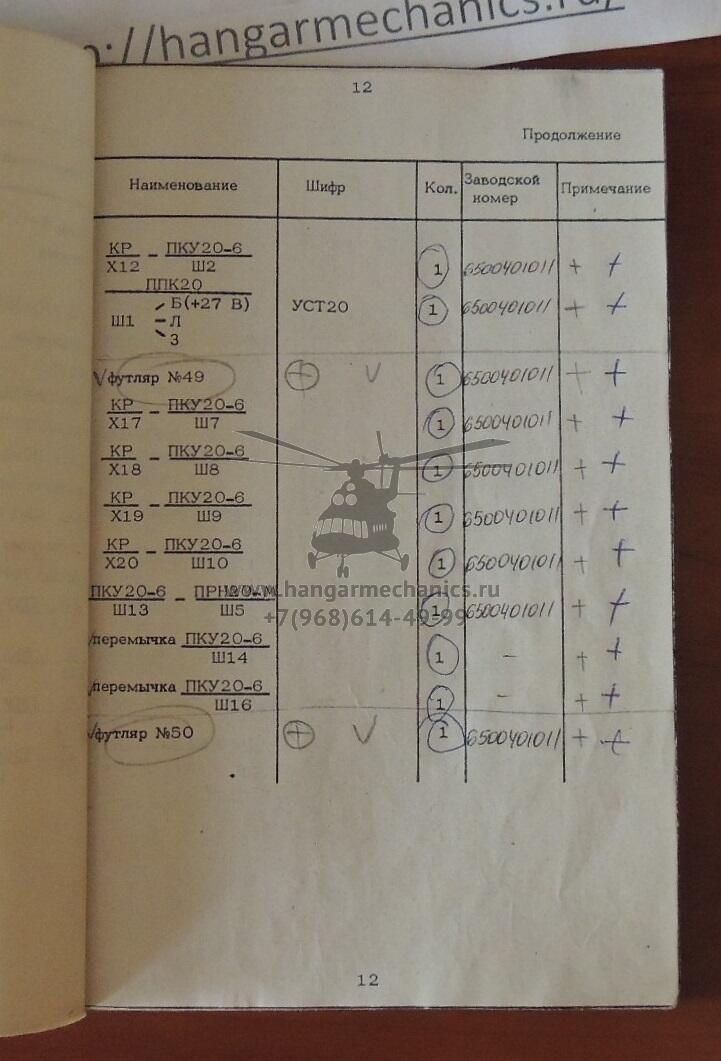 ://hangarmechanics.ru/
12
Продолжение
Наименование Шифр Кол. Заводской номер Примечание
КР – ПКУ20-6 1 6500401011 + +
Х12 Ш2
ППК20
Б(+27 В) УСТ20 1 6500401011 + +
Ш1 Л
З
√футляр №49 + V 1 6500401011 + +
КР – ПКУ20-6 1 6500401011 + +
Х17 Ш7
КР – ПКУ20-6 1 6500401011 + +
Х18 Ш8
КР – ПКУ20-6 1 6500401011 + +
Х19 Ш9
КР – ПКУ20-6 1 6500401011 + +
Х20 Ш10
www.hangarmechanics.ru
ПКУ20-6 – 1 6500401011 + +
Ш13 Ш5
+7(968)614-49-99
перемычка ПКУ20-6 1 – + +
Ш14
перемычка ПКУ20-6 1 – + +
Ш16
√футляр №50 + V 1 6500401011 + +
12